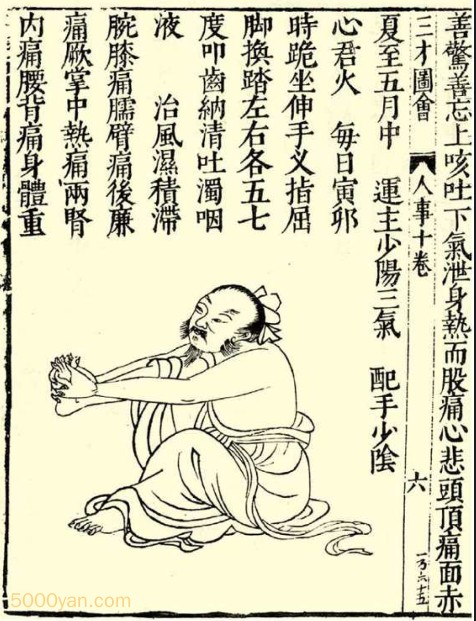 善驚善忘上咳吐下氣泄身熱而股痛心悲頭頂痛面赤
三才圖會 人事十卷 六
夏至五月中 運主少陽三氣 配手少陰
心君火 每日寅卯
時跪坐伸手义指屈
脚換踏左右各五七
度叩齒納清吐濁咽
液 治風濕積滯
腕膝痛臑臂痛後廉
痛厥掌中熱痛兩腎
內痛腰背痛身體重
5000yan.com